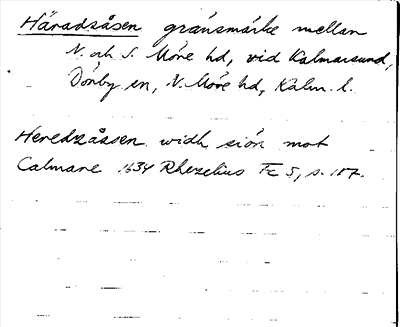 Häradsåsen gränsmärke mellan
N. och S. Möre hd, vid Kalmarsund,
Dörby sn, N. Möre hd, Kalm. l.
Heredzåssen widh siön mot
Calmare 1634 Rhezelius Fc 5, s. 187.